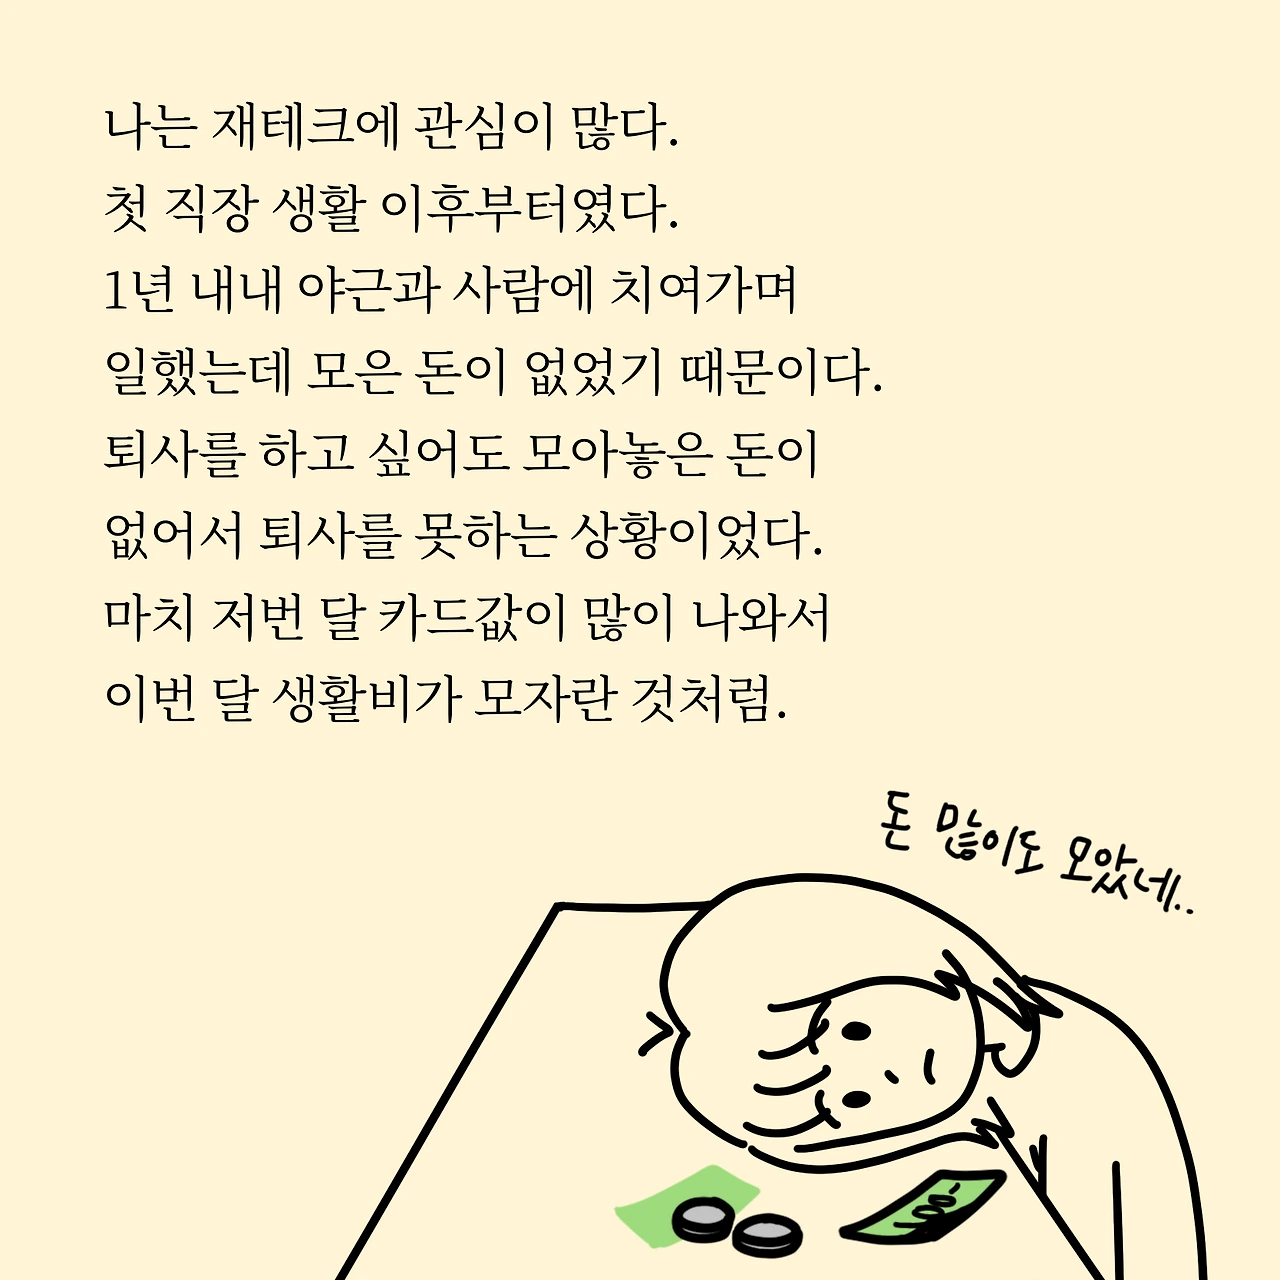 나는 재테크에 관심이 많다.
첫 직장 생활 이후부터였다.
1년 내내 야근과 사람에 치여가며
일했는데 모은 돈이 없었기 때문이다.
퇴사를 하고 싶어도 모아놓은 돈이
없어서 퇴사를 못하는 상황이었다.
마치 저번 달 카드값이 많이 나와서
이번 달 생활비가 모자란 것처럼.
돈 많이도 모았네..